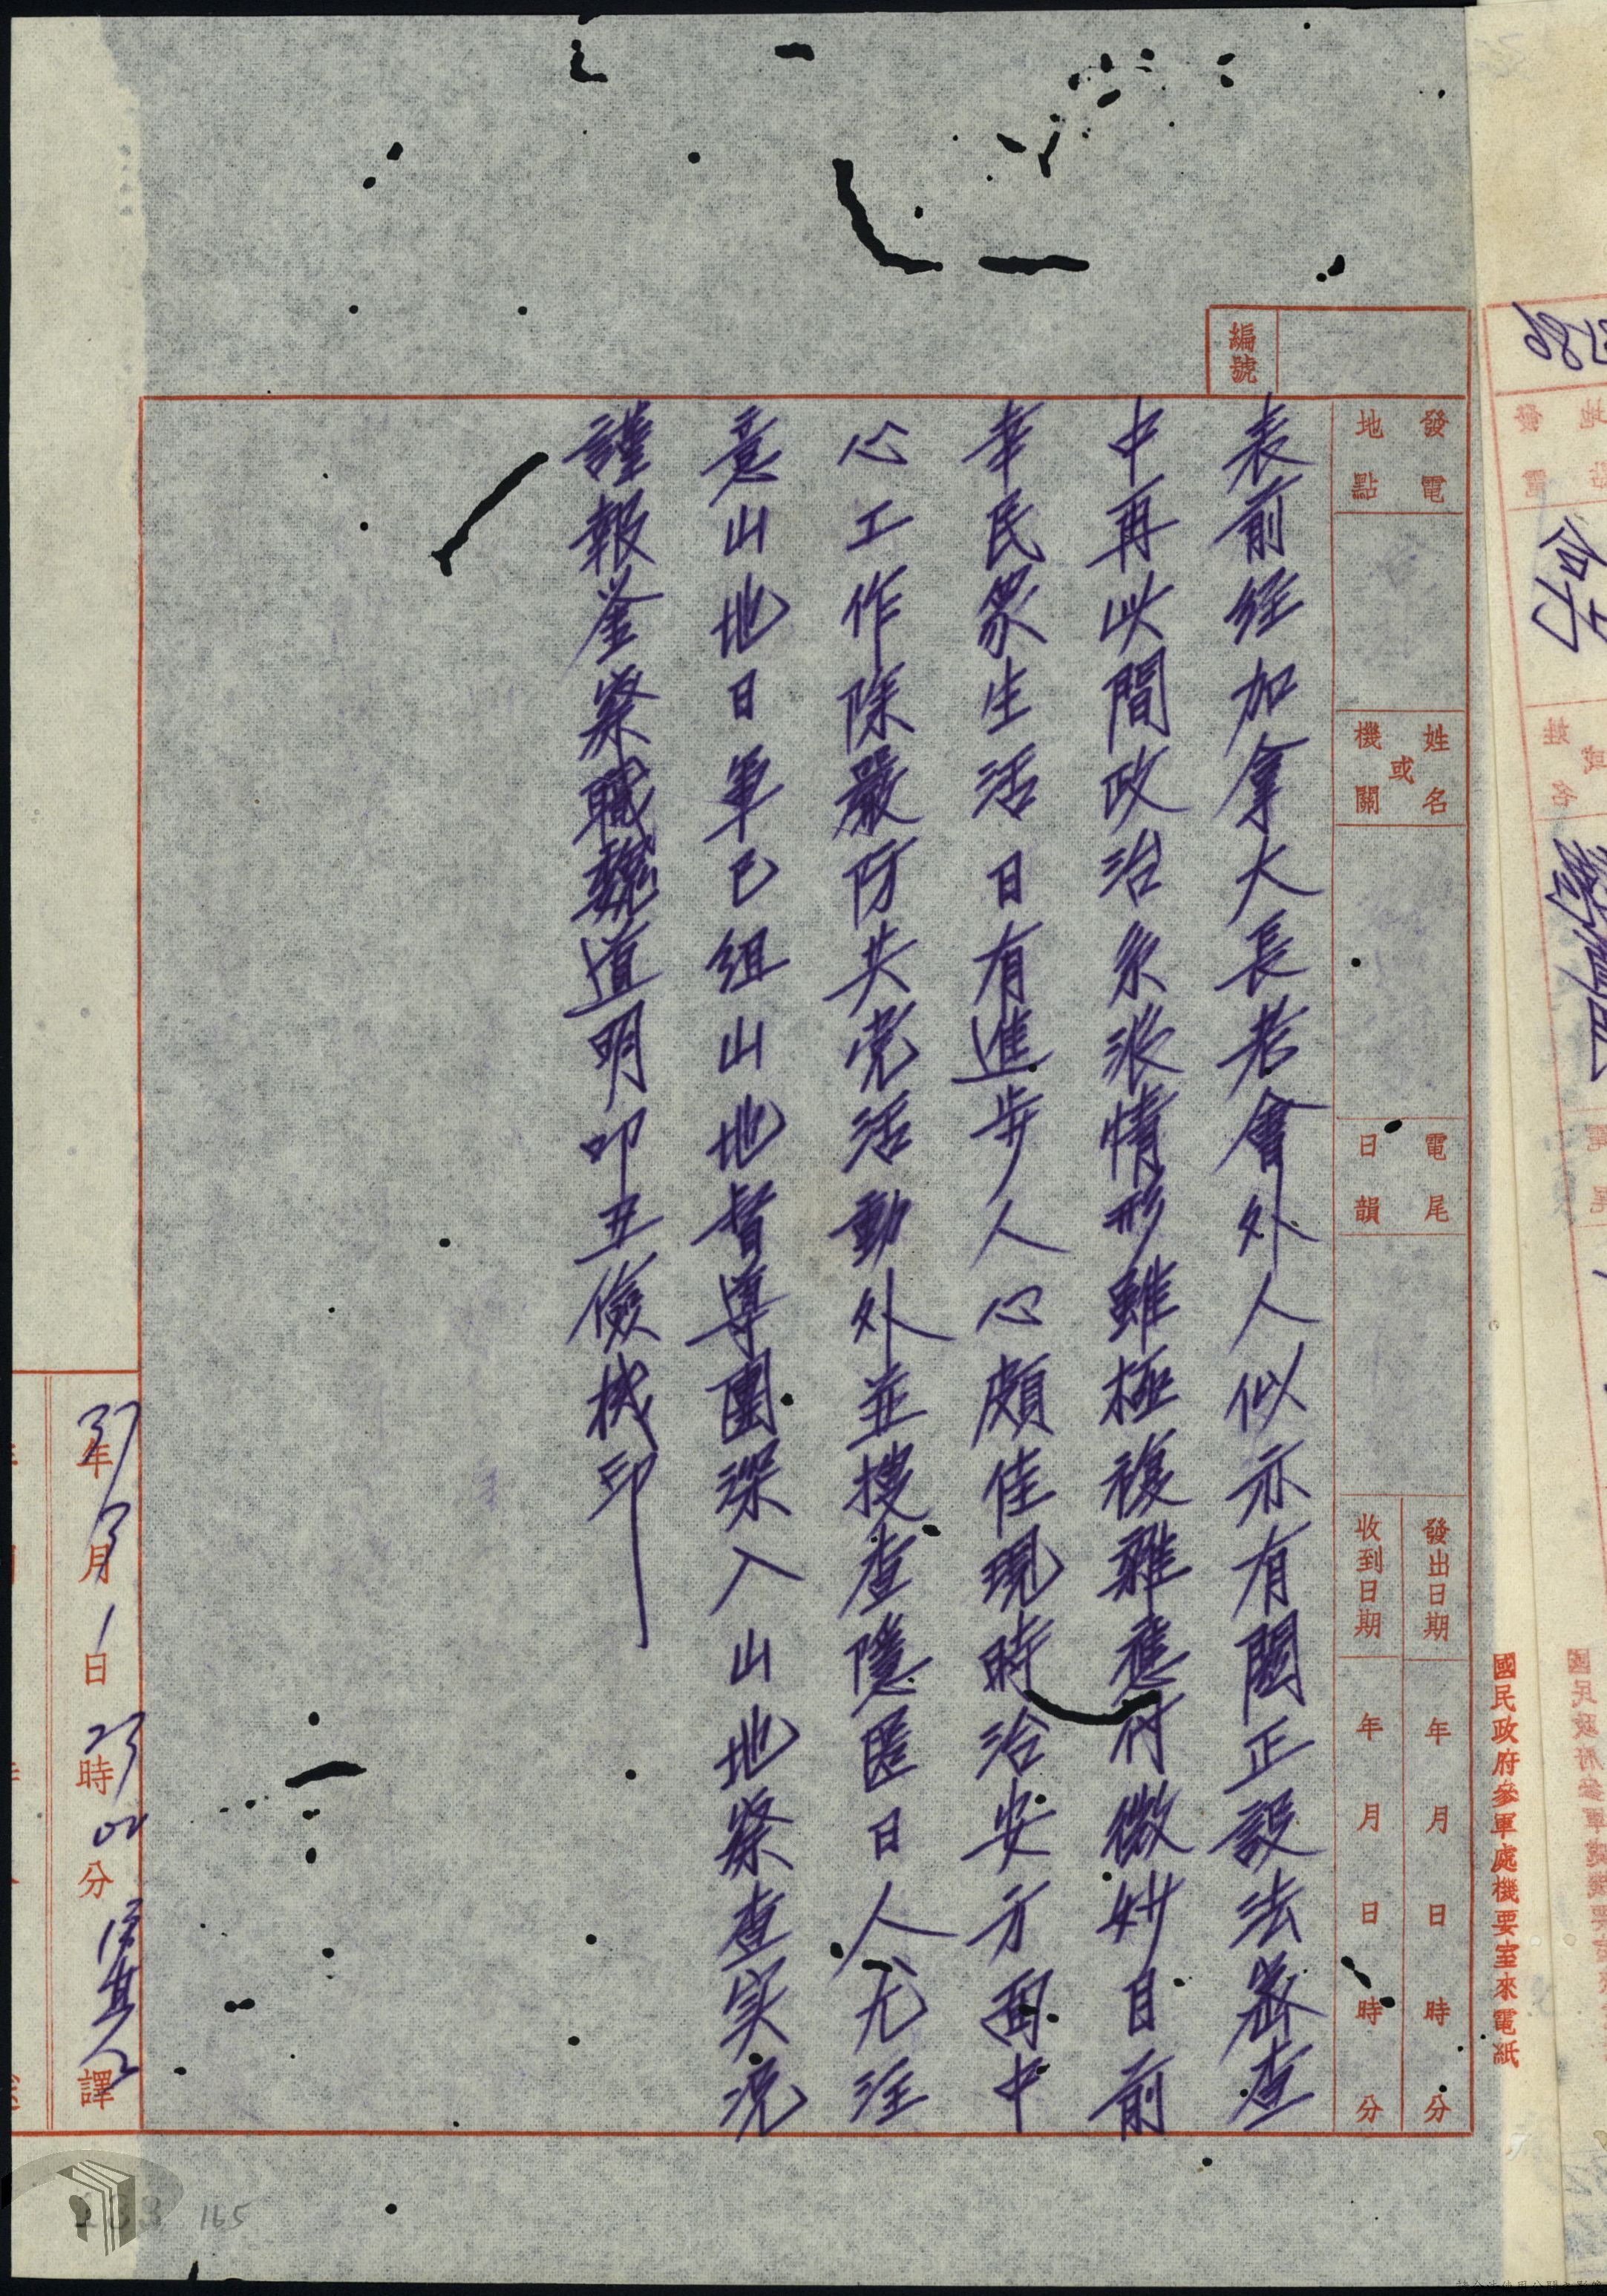 編號
發電地點
姓名或機關
電尾日韻
發出日期 年 月 日 時 分
收到日期 年 月 日 時 分
表前经加拿大長老會外人似亦有関正設法密查
中再此間政治系派情形雖極複雜應付微妙目前
幸民衆生活日有進步人心頗佳現時治安方面中
心工作除嚴防共党活動外並搜查隱匿日人尤注
意山地日軍已组山地督導團深入山地察查実况
謹報鉴察職魏道明叩丑儉機印
37年3月1日23時 分 譯
國民政府參軍處機要室來電紙
165